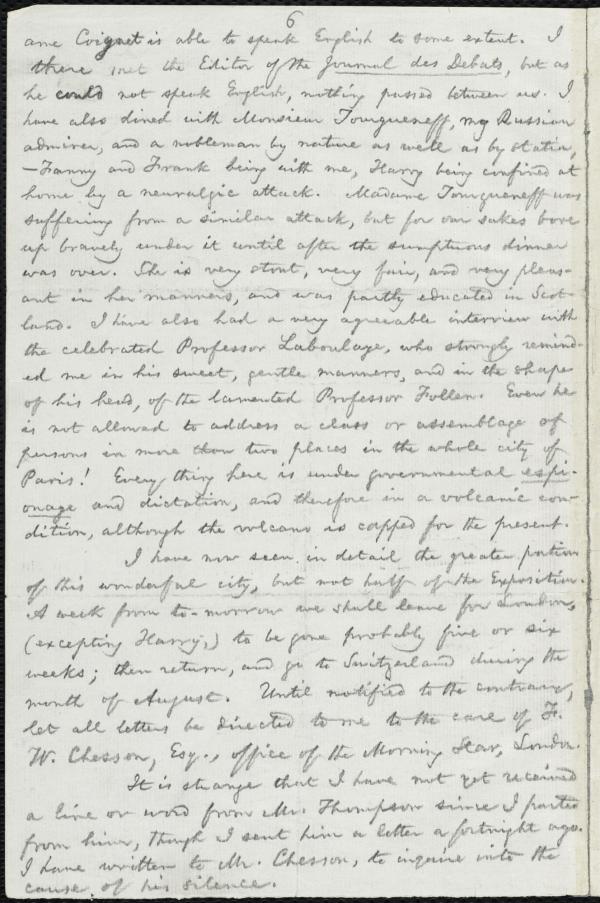 6
ame Coignet is able to speak English to some extent. I
there met the Editor of the Journal des Debats, but as
he could not speak English, nothing passed between us. I
have also dined with Monsieur Tourgueneff, my Russian
admirer, and a nobleman by nature as well as by station,
—Fanny and Frank being with me, Harry being confined at
home by a neuralgic attack. Madame Tourgueneff was
suffering from a similar attack, but for our sakes bore
up bravely under it until after the sumptuous dinner
was over. She is very stout, very fair, and very pleas-
ant in her manners, and was partly educated in Scot-
land. I have also had a very agreeable interview with
the celebrated Professor Laboulaye, who strongly remind-
ed me in his sweet, gentle manners, and in the shape
of his head, of the lamented Professor Follen. Even he
is not allowed to address a class or assemblage of
persons in more than two places in the whole city of
Paris! Every thing here is under governmental espi-
onage and dictation, and therefore in a volcanic con-
dition, although the volcano is capped for the present.
I have now seen in detail the greater portion
of this wonderful city, but not half of the Exposition.
A week from to-morrow we shall leave for London,
(excepting Harry,) to be gone probably five or six
weeks; then return, and go to Switzerland during the
month of August. Until notified to the contrary,
let all letters be directed to me to the care of F.
W. Chesson, Esq., office of the Morning Star, London.
It is strange that I have not yet received
a line or word from Mr. Thompson since I parted
from him, though I sent him a letter a fortnight ago.
I have written to Mr. Chesson, to inquire into the
cause of his silence.